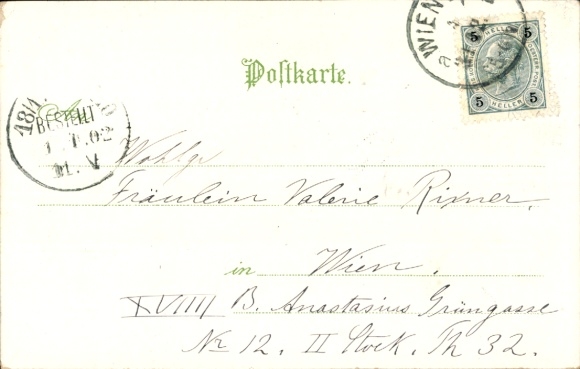 WIEN
5 5
HELLER
5 HELLER 5
Postkarte.
An
18/1
BESTELLT
1. 1. 02
11. V
Wohlg
Fräulein Valerie Rixner.
in Wien.
XVIII/ B. Anastasius Grüngasse
No 12. II Stock. Th 32.